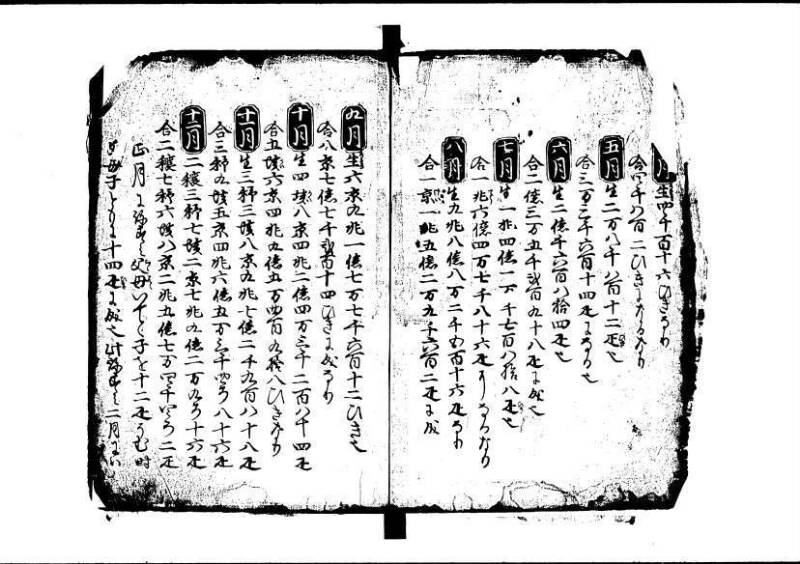 月生四千百十六ひきなり
合四千八百二ひきになるなり
五月生二万八千八百十二疋也
合三万三千六百十四疋になる也
六月生二億千六百八拾四疋也
合二億三万五千貳百九十八疋に成也
七月生一兆四億一万千七百八拾八疋也
合一兆六億四万七千八十六疋になるなり
八月生九兆八億八万二千五百十六疋なり
合一京一兆五億二万九千六百二疋に成
九月生六京九兆一億七万七千六百十二ひき也
合八京七億七千貳百十四ひきに成なり
十月生四垓八京四兆二億四万三千二百八十四疋
合五垓六京四兆九億五万四百九拾八ひきなり
十一月生三秭三垓八京九兆七億二千九百八十八疋
合三秭九垓五京四兆六億五万三千四百八十六疋
十二月二穰三秭七垓二京七兆九億二万九百十六疋
合二穰七秭六垓八京二兆五億七万四千四百二疋
正月にねずみ父母いでて子を十二疋うむ時
母子ともに十四疋に成也此ねずみ二月には